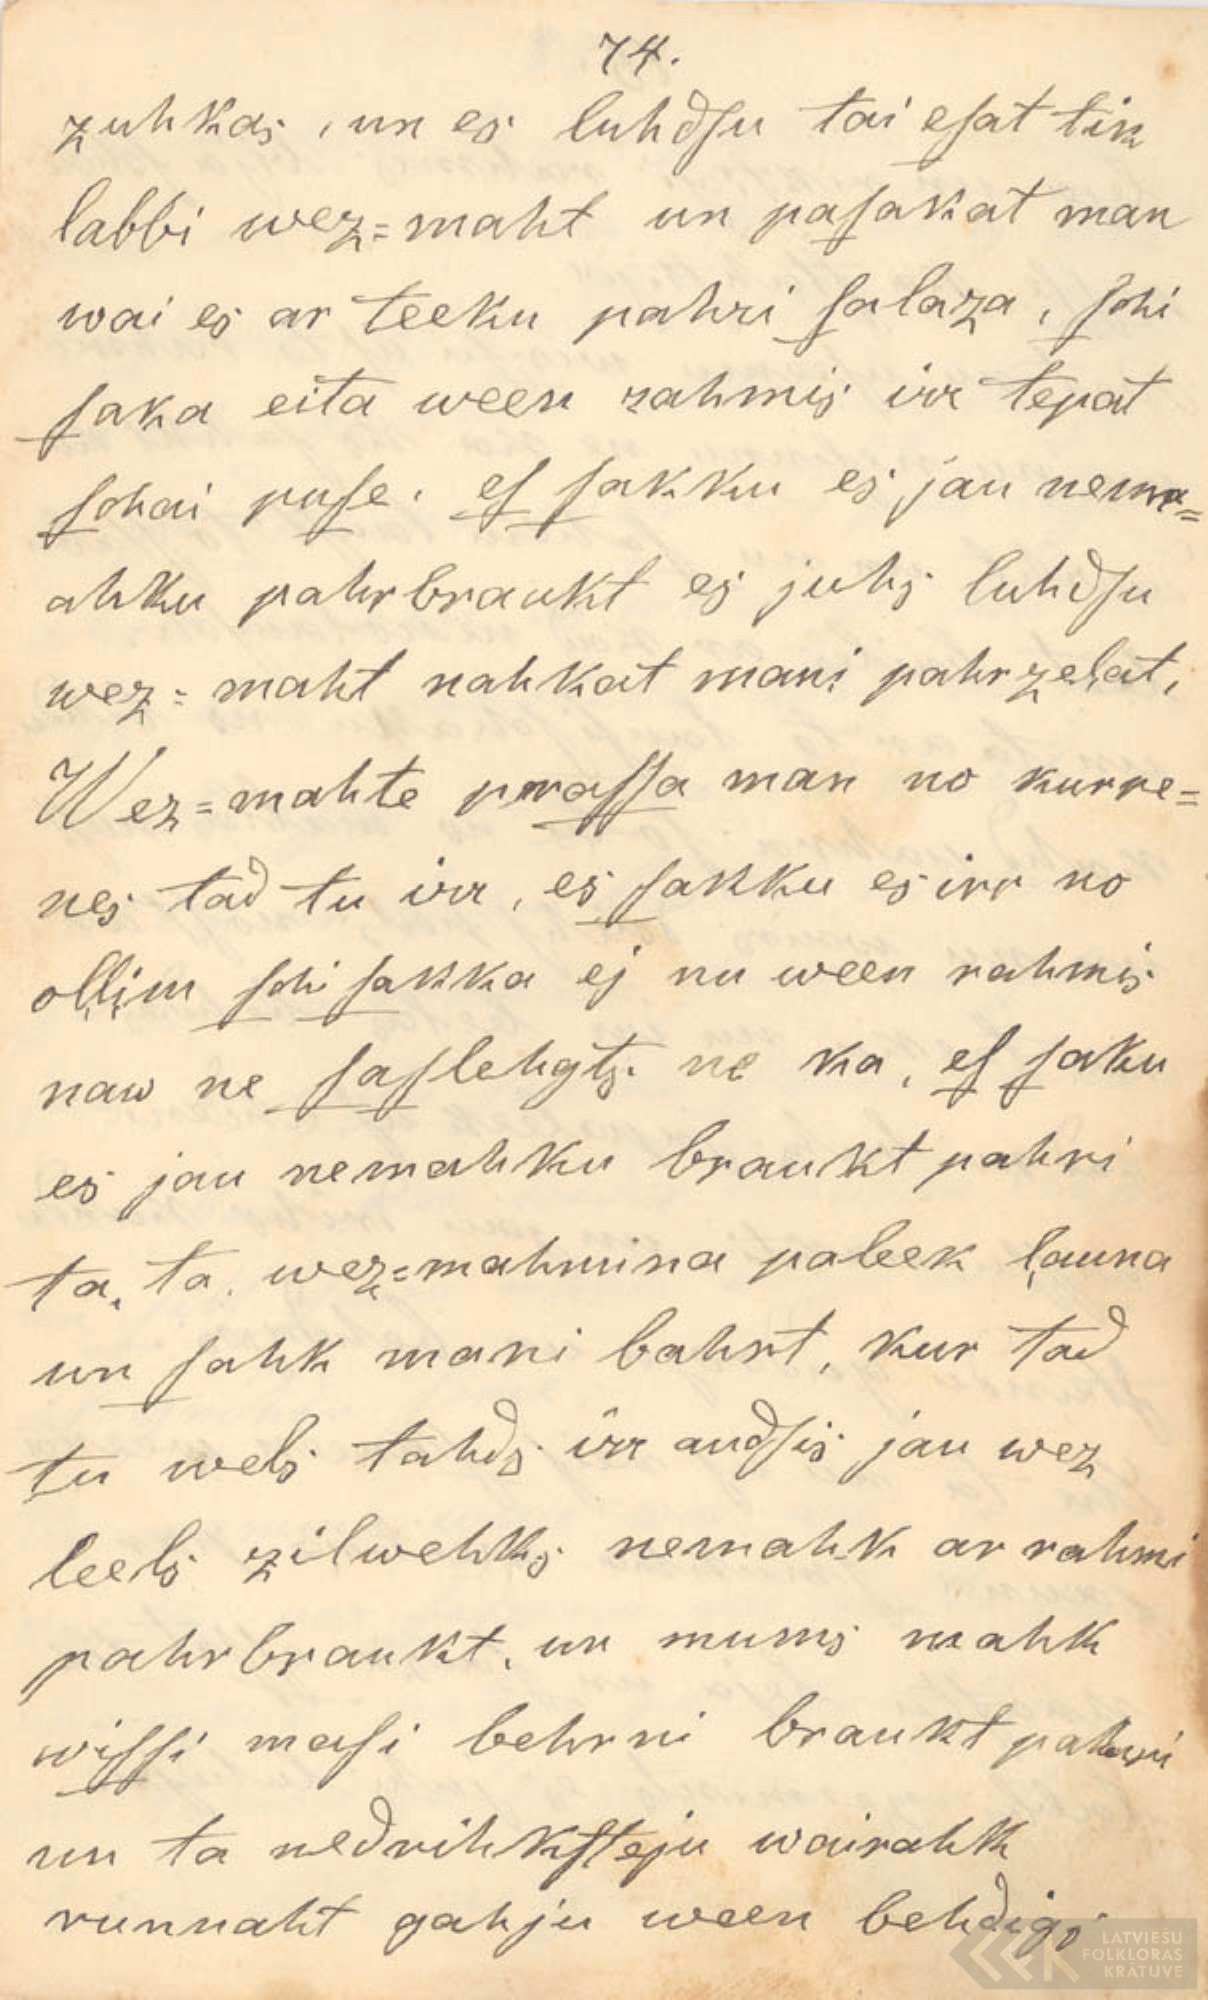 74.
zuhkas, un es luhdſu tai eſat tik
labbi wez=maht un paſakat man
wai es ar teeku pahri ſalaza, ſchi
ſaka eita ween rahmis irr tepat
ſchai puſe. eſ ſakku es jau nema=
ahku pahrbraukt es juhs luhdſu
wez=maht nahkat mani pahrzeļat,
Wez=mahte praſſa man no kurre=
nes tad tu irr, es ſakku es irr no
oļļim ſchi ſakka ej nu ween rahmis
naw ne ſaſlehgts ne ka, eſ ſaku
es jau nemahku braukt pahri
ta, ta, wez=mahmina paleek ļauna
un ſahk mani bahrt, kur tad
tu wels tahds irr audſis jau wez
leels zilwehks nemahk ar rahmi
pahrbraukt, un mums mahk
wiſſi maſi behrni braukt pahri
un ta nedrihkſteju wairahk
runnaht gahju ween behdigs
LATVIEŠU
FOLKLORAS
KRĀTUVE